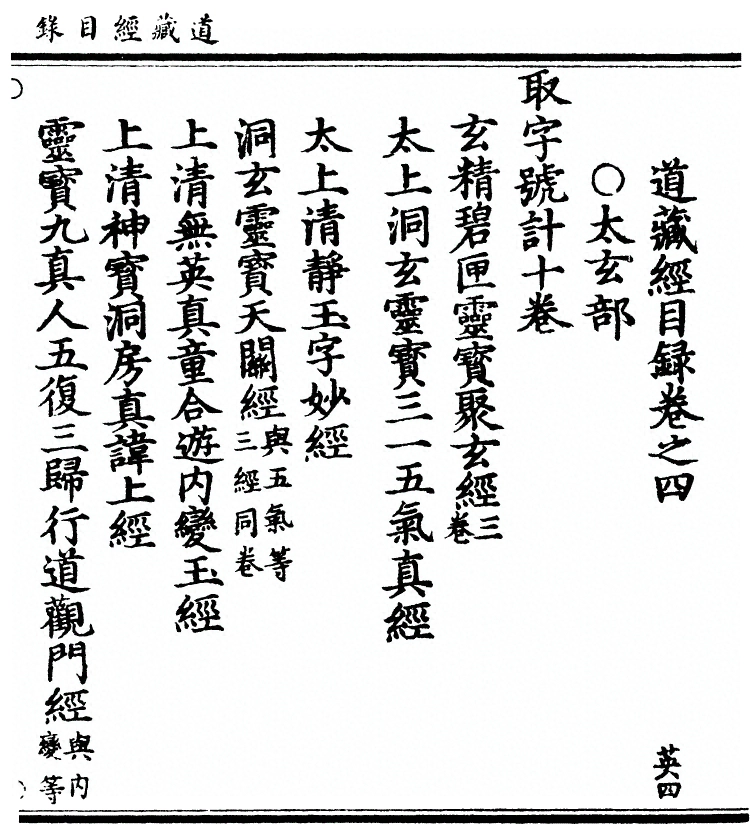 道藏經目錄
道藏經目録卷之四 英四
○太玄部
取字號計十卷
玄精碧匣靈寳聚玄經三卷
太上洞玄靈寳三一五氣真經
太上清靜玉字妙經
洞玄靈寳天關經與五氣等三經同卷
上清無英真童合遊内變玉經
上清神寳洞房真諱上經
靈寳九真人五復三歸行道觀門經與内變等